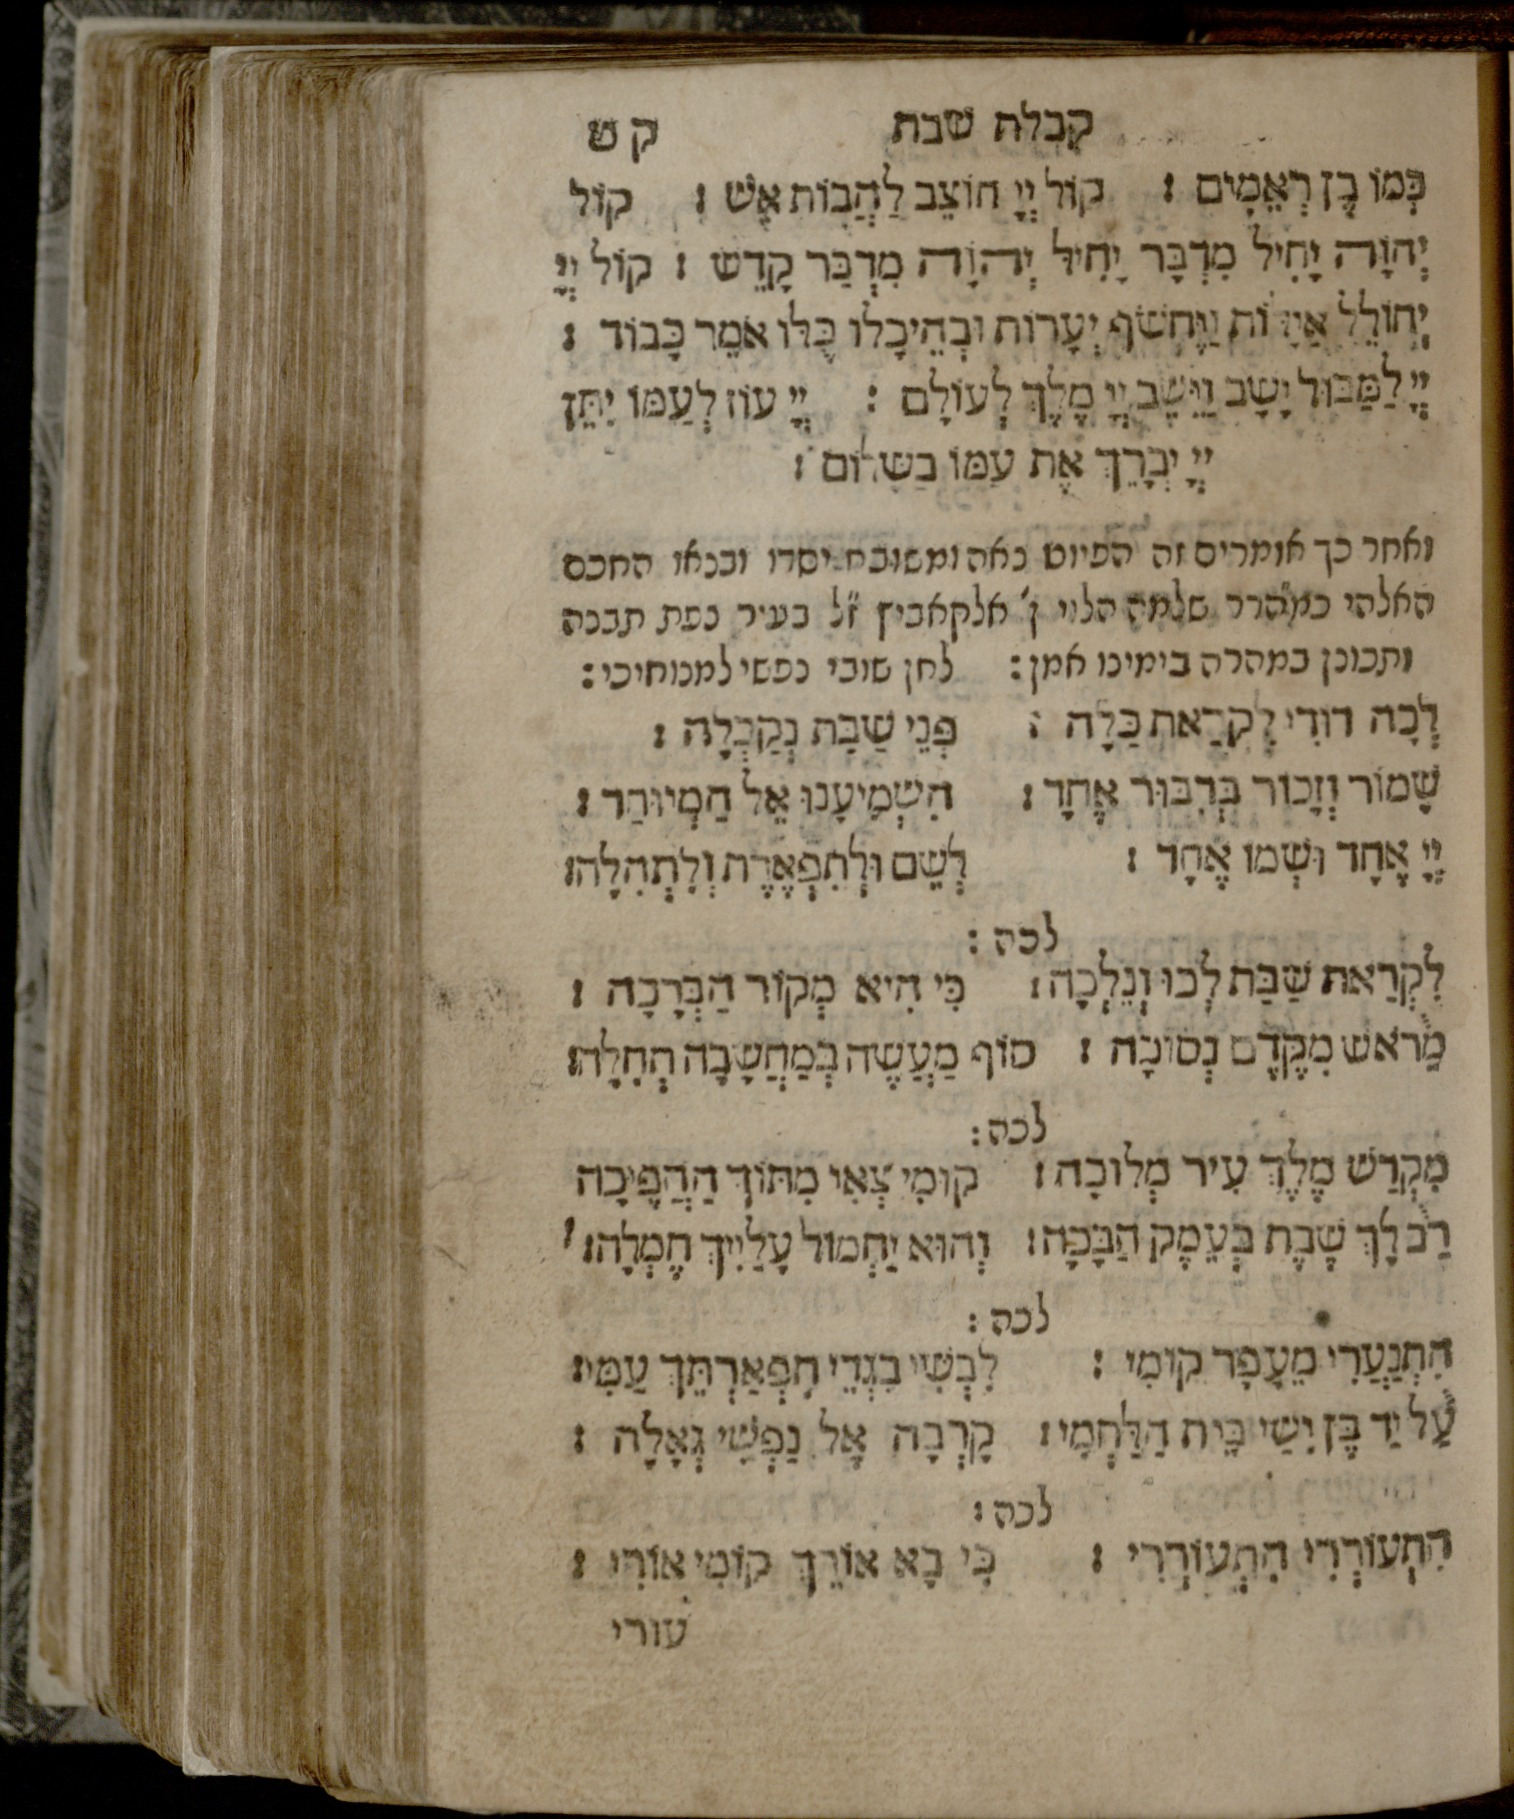 קבלת שבת
קט
כְּמוֹ בֶן רְאֵמִים : קוֹל יְיָ חוֹצֵב לַהֲבוֹת אֵשׁ : קוֹל
יְהוָֹה יָחִיל מִדְבָּר יָחִיל יְהוָֹה מִדְבַּר קָדֵשׁ : קוֹל יְיָ
יְחוֹלֵל אַיָּלוֹת וַיֶּחְשׂף יְעָרוֹת וּבְהֵיכָלוֹ כֻּלּוֹ אֹמֵר כָּבוֹד :
יְיָ לַמַּבּוּל יָשָׁב וַיֵּשֶׁב יְיָ מֶלֶךְ לְעוֹלָם : יְיָ עוֹז לְעַמּוֹ יִתֵּן
יְיָ יְבָרֵךְ אֶת עַמּוֹ בַשָּׁלוֹם :
ואחר כך אומרים זה הפיוט נאה ומשובח יסדו ובנאו החכם
האלהי כמהרר שלמה הלוי ן' אלקאביץ ז"ל בעיר צפת תבנה
ותכונן במהרה בימינו אמן : לחן שובי נפשי למנוחיכי :
לְכָה דוֹדִי לִקְרַאת כַּלָּה : פְּנֵי שַׁבָּת נְקַבְּלָה :
שָׁמוֹר וְזָכוֹר בְּדִבּוּר אֶחָד : הִשְׁמִיעָנוּ אֵל הַמְיוּחַד :
יְיָ אֶחָד וּשְׁמוֹ אֶחָד : לְשֵׁם וּלְתִפְאֶרֶת וְלִתְהִלָּה:
לכה :
לִקְרַאת שַׁבַּת לְכוּ וְנֵלְכָה : כִּי הִיא מְקוֹר הַבְּרָכָה :
מֵרֹאשׁ מִקֶּדֶם נְסוּכָה : סוֹף מַעֲשֶׂה בְּמַחֲשָׁבָה תְּחִלָּה:
לכה :
מִקְדַּשׁ מֶלֶךְ עִיר מְלוּכָה : קוּמִי צְאִי מִתּוֹךְ הַהֲפֵיכָה
רַב לָךְ שֶׁבֶת בְּעֵמֶק הַבָּכָה : וְהוּא יַחְמוֹל עָלַיִיךְ חֶמְלָה:
לכה :
הִתְנַעֲרִי מֵעָפָר קוּמִי : לִבְשִׁי בִּגְדֵי תִּפְאַרְתֵּךְ עַמִּי:
עַל יַד בֶּן יִשַׁי בֵּית הַלַּחְמִי : קָרְבָה אֶל נַפְשִׁי גְאָלָהּ :
לכה :
הִתְעוֹרְרִי הִתְעוֹרְרִי : כִּי בָא אוֹרֵךְ קוּמִי אוֹרִי :
עורי